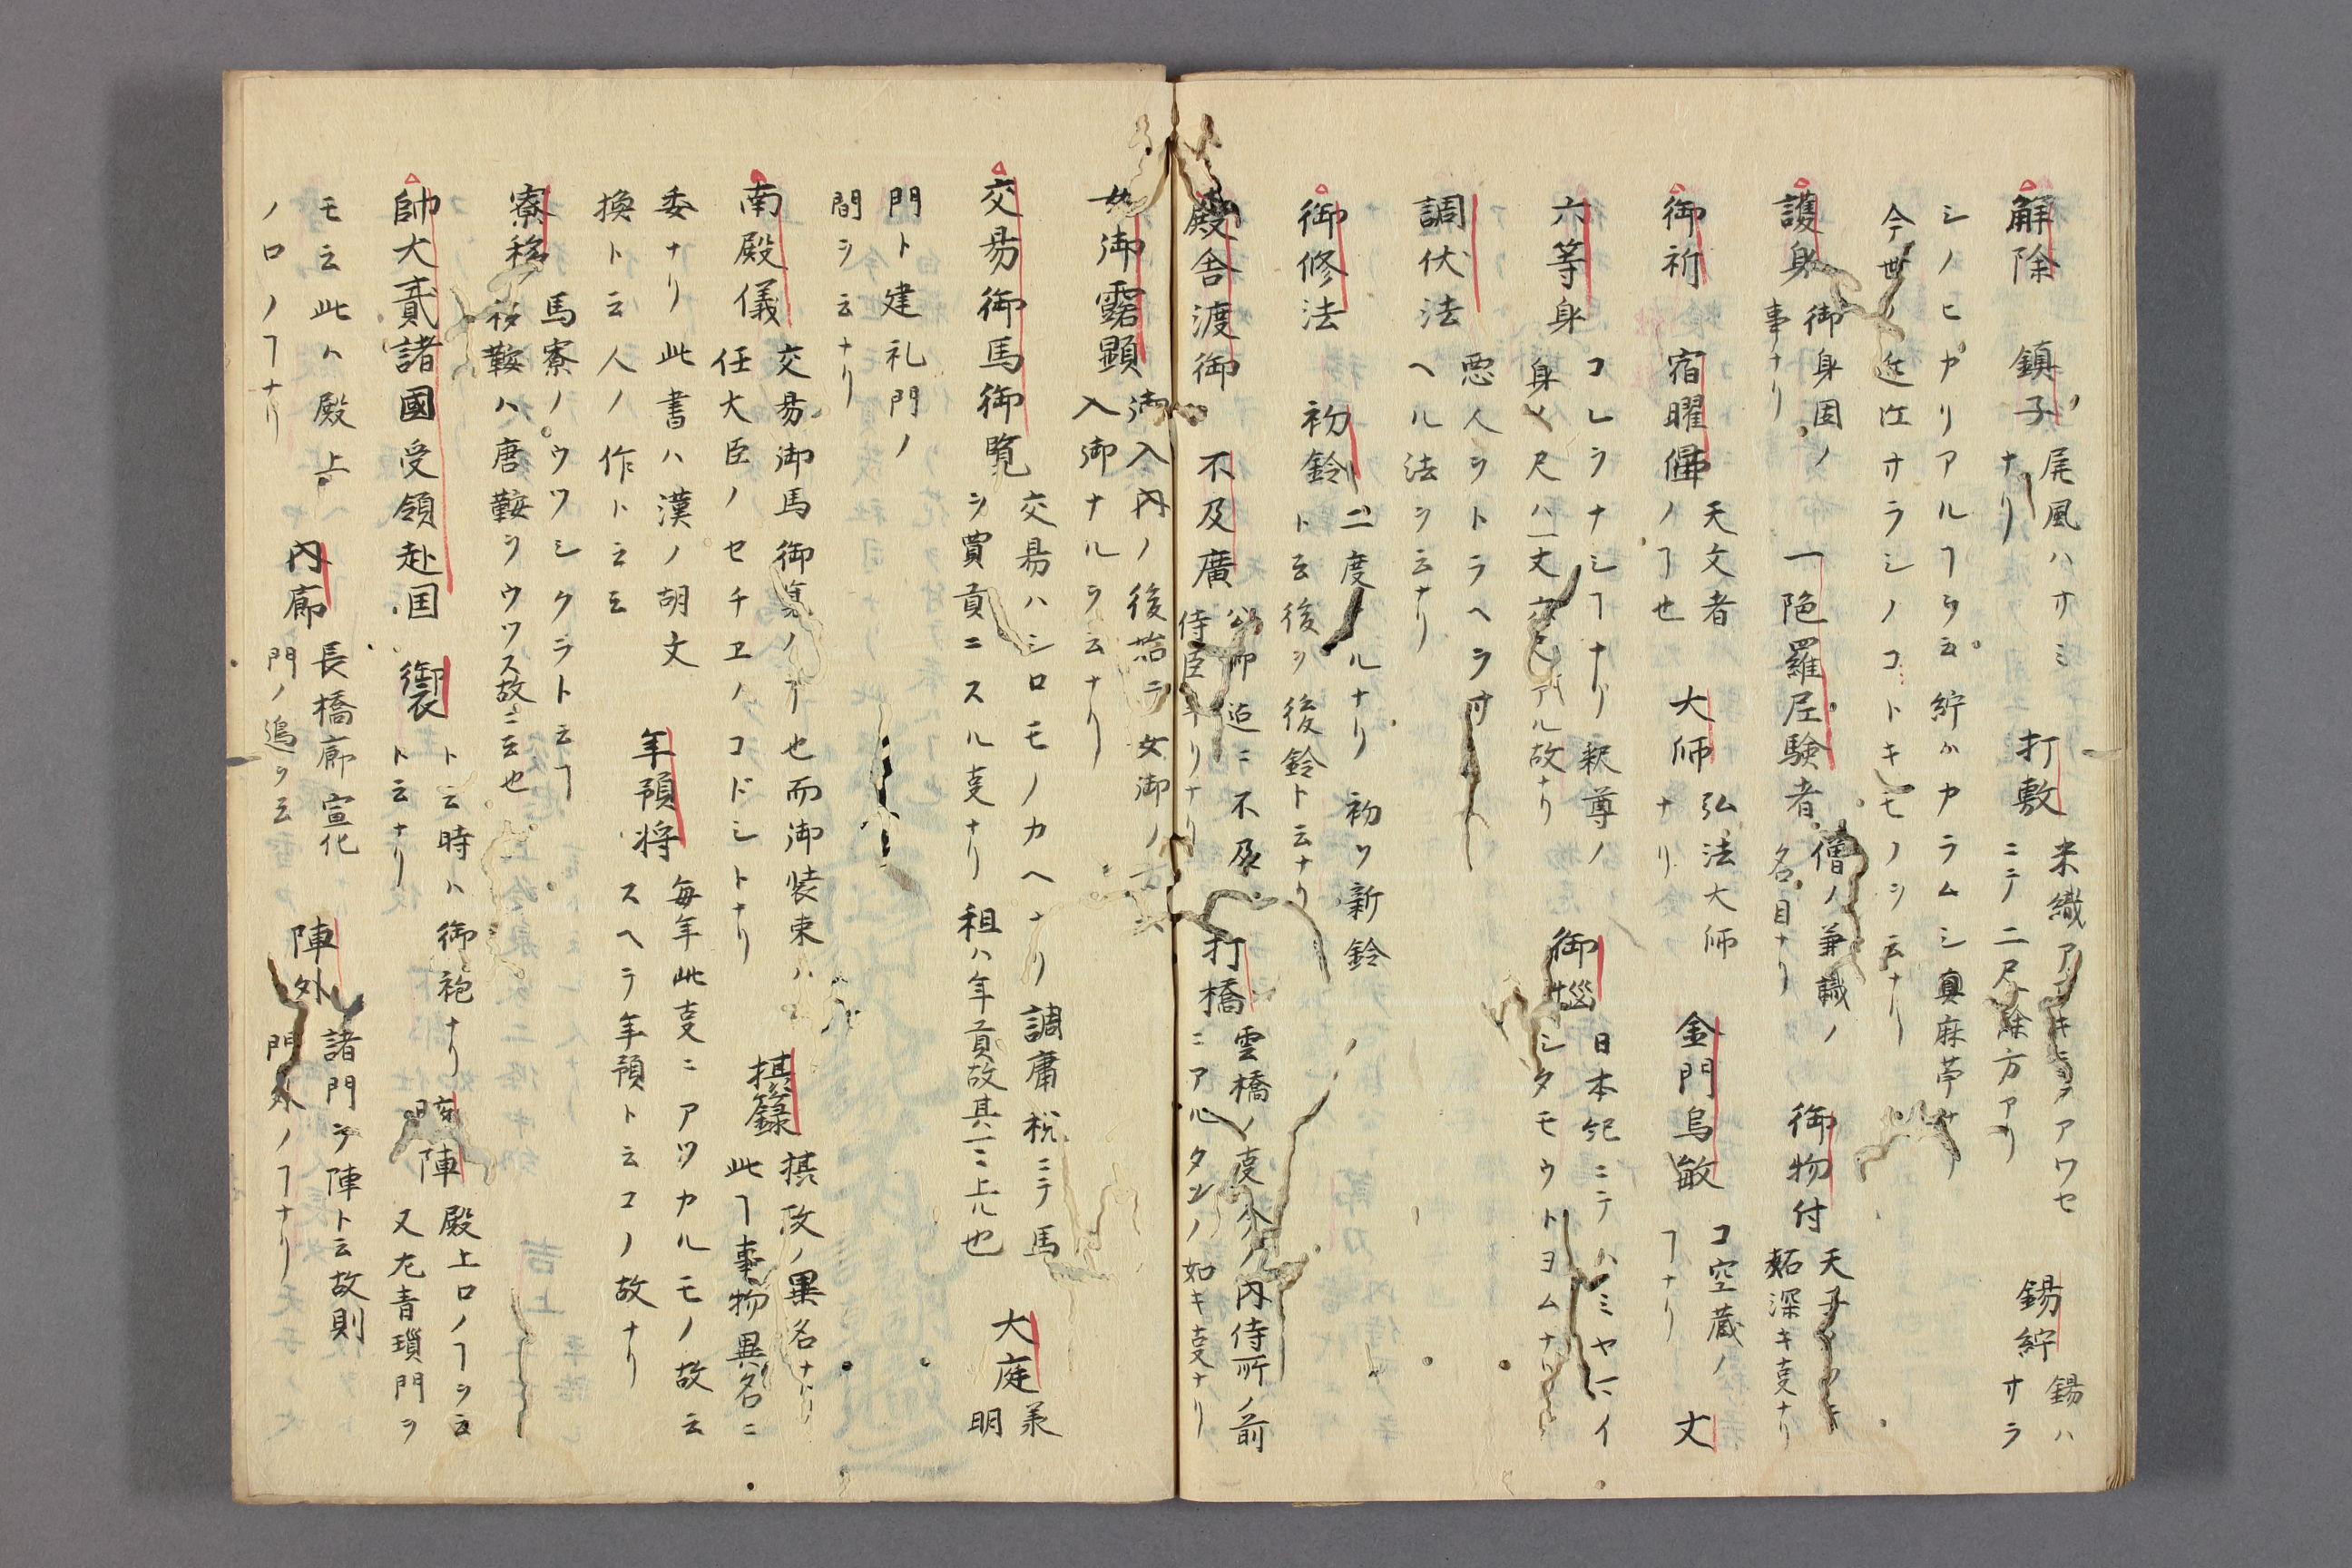 解除
鎮子
尾風ハオミ
ナリ
打敷
米織アフキヲアワセ
ニテ二尺餘方アリ
錫紵
錫ハ
オラ
シノヒアリアルヿヲ云紵ハカラムシ真麻苧ナリ
今世ノ近江オラシノコトキモノヲ云ナリ
護身
御身固ノ
事ナリ
一陀羅尼験者
僧ノ兼識ノ
名目ナリ
御物付
天子ノ
妬深キ叓ナリ
御祈
宿曜
天文者
ノヿ也
大师
弘法大师
ナリ
金門烏敏
コ空蔵ノ
ヿナリ
丈
六等身
コレラナシヿナリ釈尊ノ
身ノ尺ハ一丈六尺アル故ナリ
御惱
日本紀ニテハミヤマイ
シタモウトヨムナリ
調伏法
悪人ヲトラヘラ寸
ヘル法ヲ云ナリ
御修法
初鈴
二度ナルナリ初ツ新鈴
ト云後ヲ後鈴ト云ナリ
殿舎渡御
不及廣
公卿迠ニ不及
侍臣ナリナリ
打橋
雲橋ノ叓今ノ内侍所ノ前
ニアルタメノ如キ叓ナリ
女御露顕
御入内ノ後始テ女御ノ
入御ナルヲ云ナリ
交易御馬御覧
交易ハシロモノカヘナリ調庸税ニテ馬
ヲ買貢ニスル叓ナリ租ハ年貢故其ニ上ル也
大庭
承
明
門ト建礼門ノ
間ヲ云ナリ
南殿儀
交易御馬御覧ノヿ也而御装束ハ
任大臣ノセチヱノコドシトナリ
摂籙
摂政ノ異名ナリ
此ヿ事物異名ニ
委ナリ此書ハ漢ノ胡文
換ト云人ノ作ト云云
年預将
毎年此叓ニアツカルモノ故云
スヘテ年預ト云コノ故ナリ
寮移
馬寮ノウツシクラト云ヿ
移鞍ハ唐鞍ヲウツス故ニ云也
帥大貳諸國受領赴国
禦
ト云時ハ御袍ナリ
ト云ナリ
陣
殿上口ノヿヲ云
又左青瑣門ヲ
モ云此ハ殿上
ノロノヿナリ
内廊
長橋廊宣化
門ノ追ヲ云
陣外
諸門ヲ陣ト云故則
門外ノヿナリ